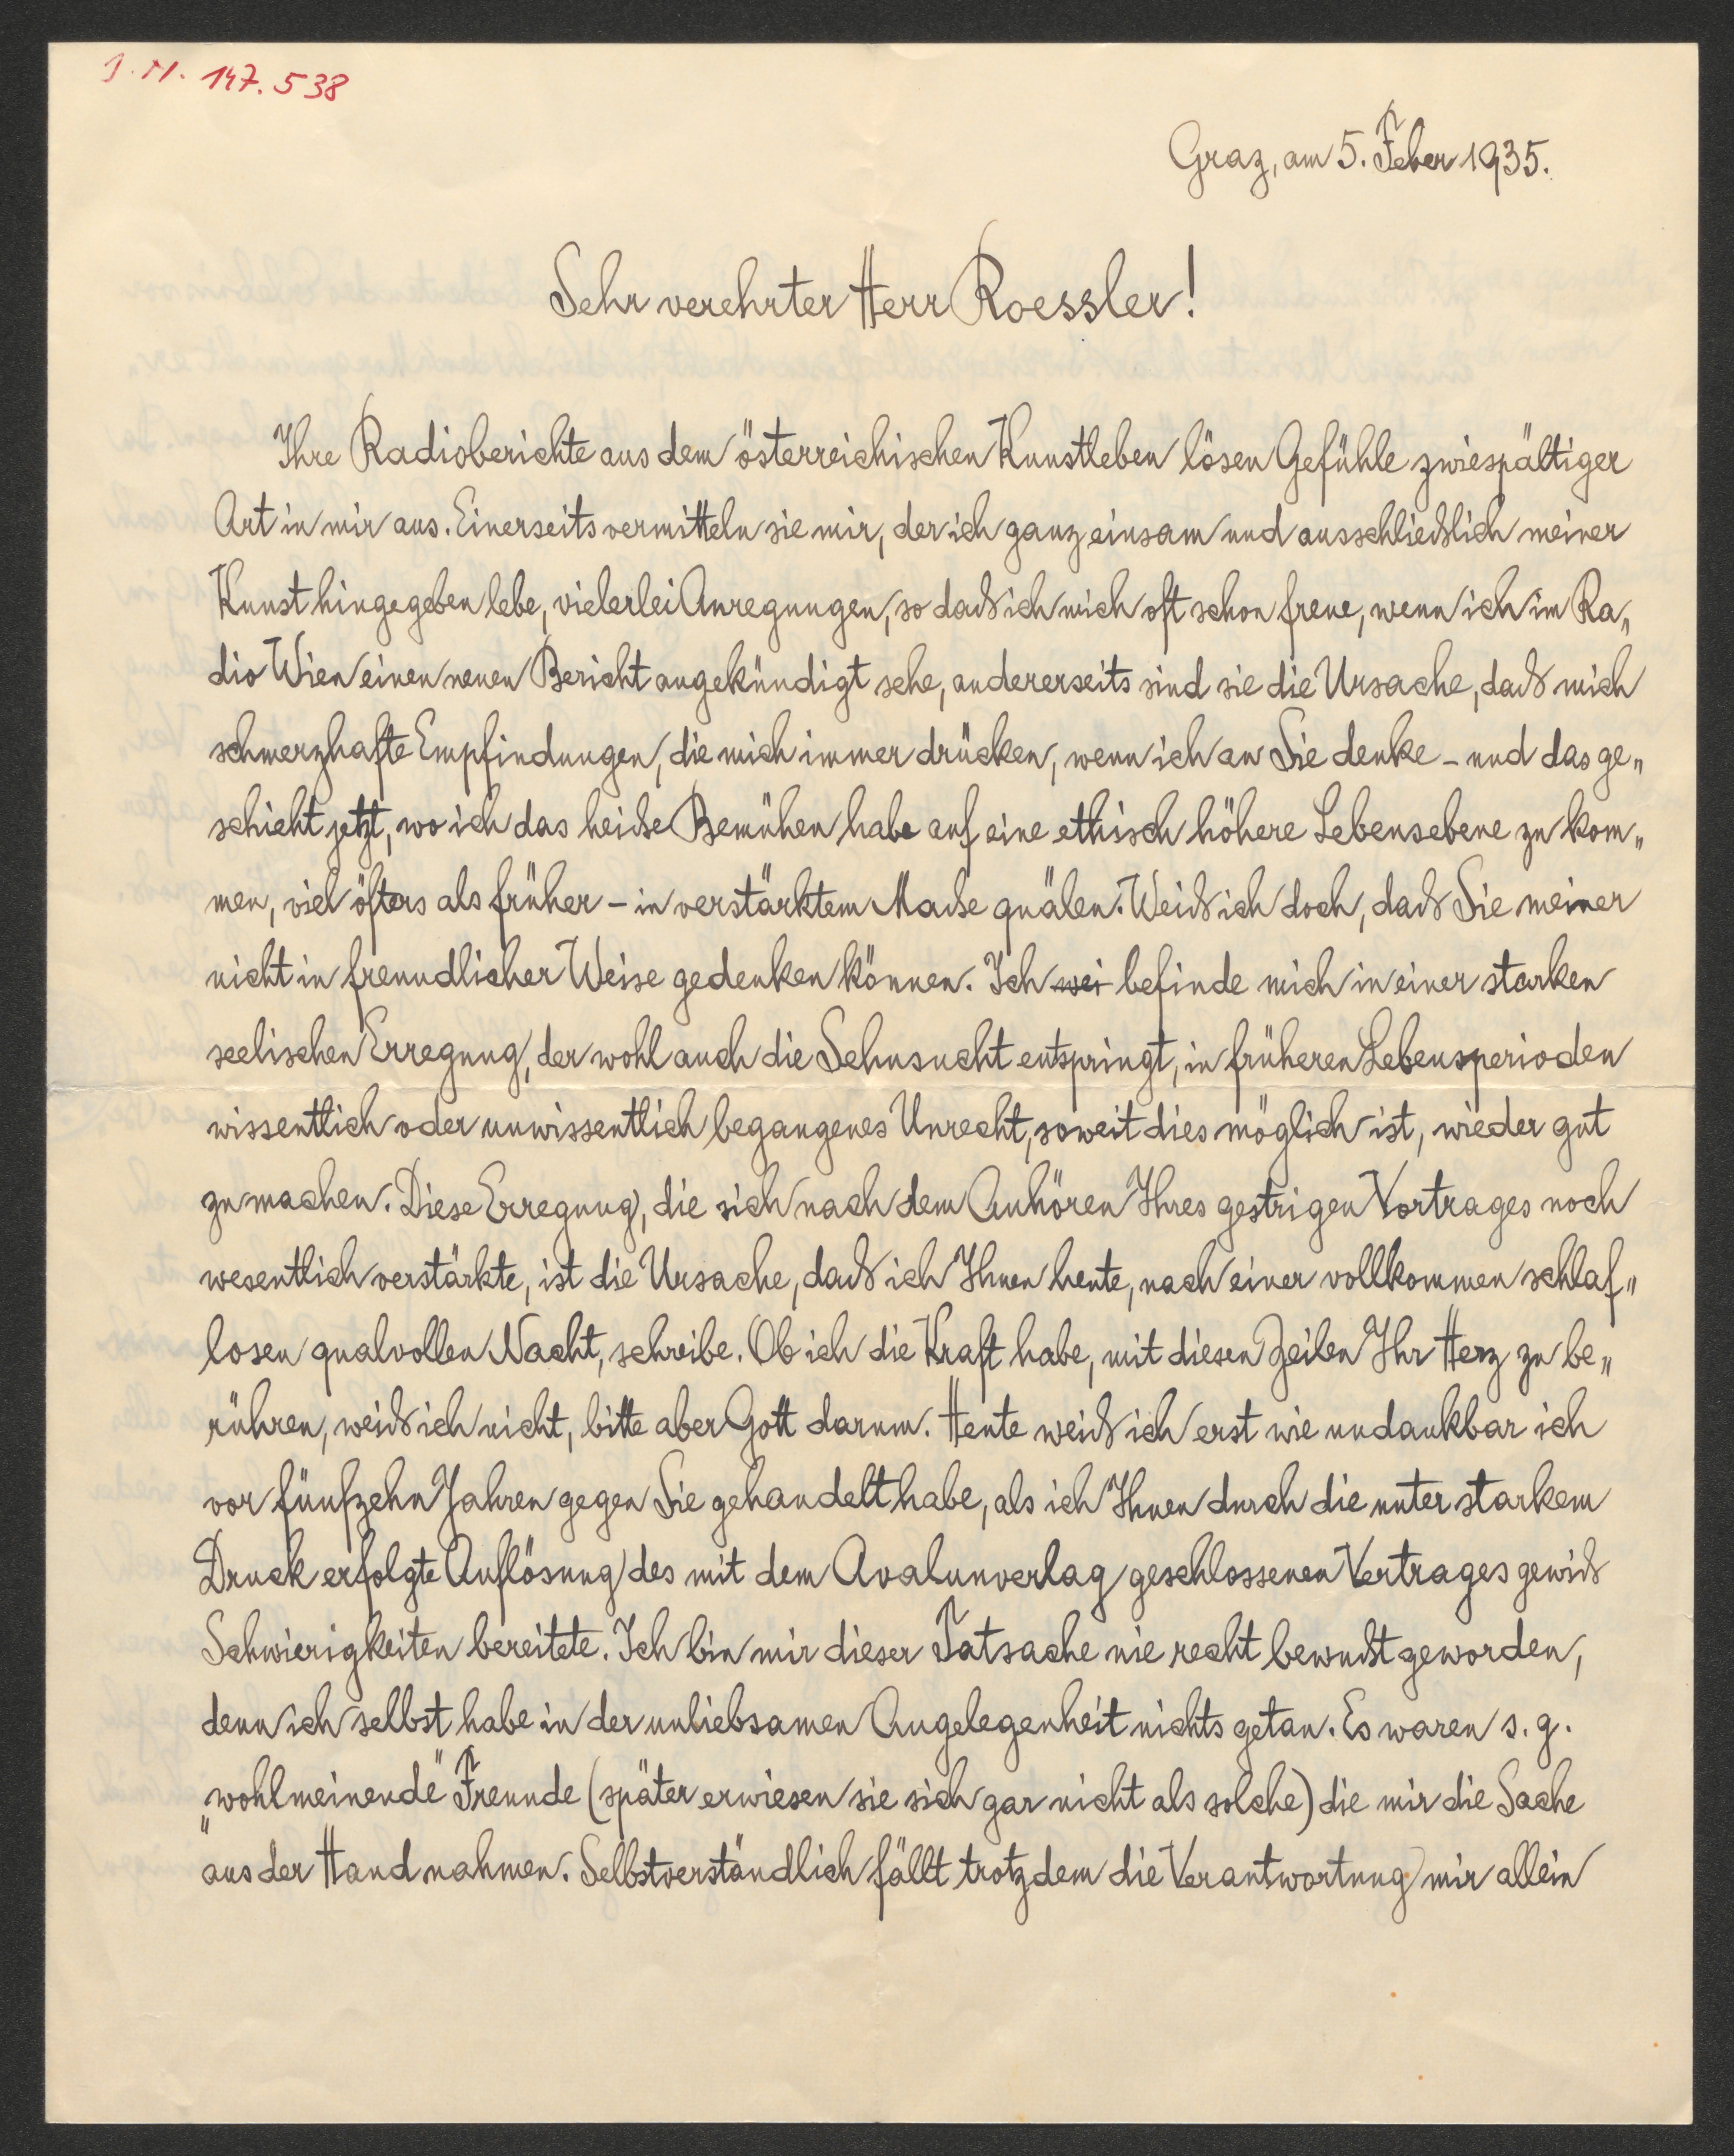 J. N. 147.538
Graz, am 5. Feber 1935.
Sehr verehrter Herr Roessler!
Ihre Radioberichte aus dem österreichischen Kunstleben lösen Gefühle zwiespältiger
Art in mir aus. Einerseits vermitteln sie mir, der ich ganz einsam und ausschließlich meiner
Kunst hingegeben lebe, vielerlei Anregungen, so daß ich mich oft schon freue, wenn ich im Ra„
dio Wien einen neuen Bericht angekündigt sehe, andererseits sind sie die Ursache, daß mich
schmerzhafte Empfindungen, die mich immer drücken, wenn ich an Sie denke – und das ge„
schieht jetzt, wo ich das heiße Bemühen habe auf eine ethisch höhere Lebensebene zu kom„
men, viel öfters als früher – in verstärktem Maße quälen. Weiß ich doch, daß Sie meiner
nicht in freundlicher Weise gedenken können. Ich wei befinde mich in einer starken
seelischen Erregung, der wohl auch die Sehnsucht entspringt, in früheren Lebensperioden
wissentlich oder unwissentlich begangenes Unrecht, soweit dies möglich ist, wieder gut
zu machen. Diese Erregung, die sich nach dem Anhören Ihres gestrigen Vortrages noch
wesentlich verstärkte, ist die Ursache, daß ich Ihnen heute, nach einer vollkommen schlaf„
losen qualvollen Nacht, schreibe. Ob ich die Kraft habe, mit diesen Zeilen Ihr Herz zu be„
rühren, weiß ich nicht, bitte aber Gott darum. Heute weiß ich erst wie undankbar ich
vor fünfzehn Jahren gegen Sie gehandelt habe, als ich Ihnen durch die unter starkem
Druck erfolgte Auflösung des mit dem Avalunverlag geschlossenen Vertrages gewiß
Schwierigkeiten bereitete. Ich bin mir dieser Tatsache nie recht bewußt geworden,
denn ich selbst habe in der unliebsamen Angelegenheit nichts getan. Es waren s. g.
„wohlmeinende" Freunde (später erwiesen sie sich gar nicht als solche) die mir die Sache
aus der Hand nahmen. Selbstverständlich fällt trotzdem die Verantwortung mir allein